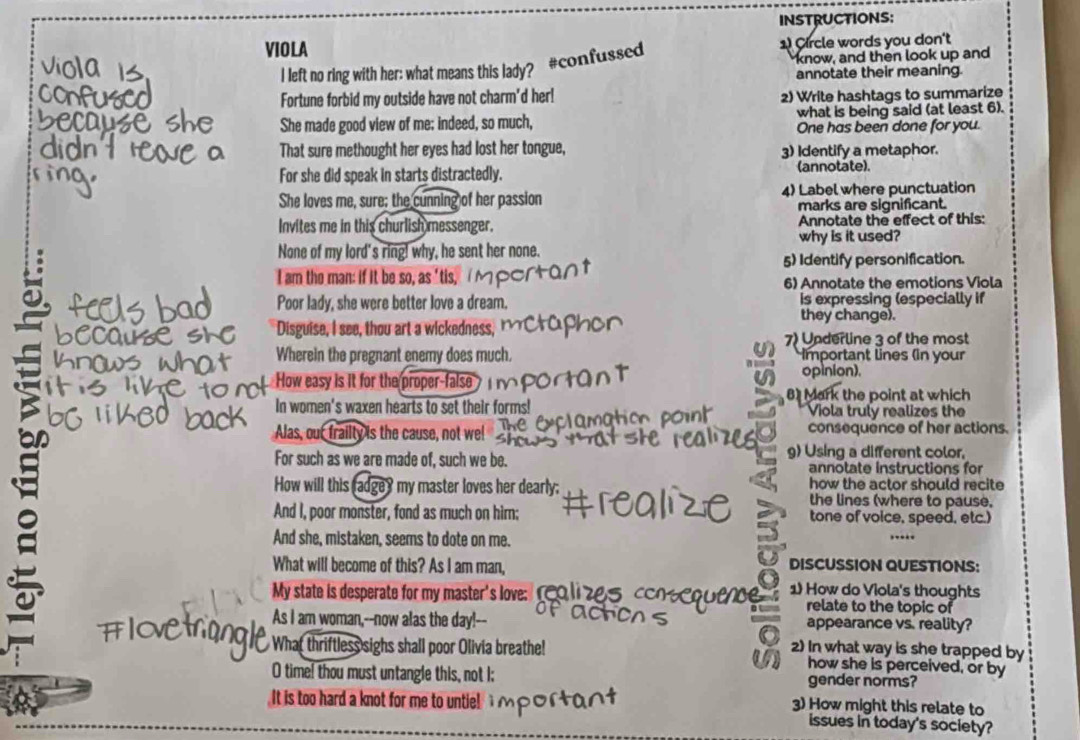 INSTRUCTIONS:
1) Circle words you don't
know, and then look up and
annotate their meaning.
2) Write hashtags to summarize
what is being said (at least 6).
One has been done for you.
3) Identify a metaphor.
(annotate).
4) Label where punctuation
marks are significant.
Annotate the effect of this:
why is it used?
5) Identify personification.
6) Annotate the emotions Viola
is expressing (especially if
they change).
7) Underline 3 of the most
important lines (in your
opinion).
8) Mark the point at which
Viola truly realizes the
consequence of her actions.
9) Using a different color,
annotate instructions for
how the actor should recite
the lines (where to pause,
tone of voice, speed, etc.)
*****
DISCUSSION QUESTIONS:
1) How do Viola's thoughts
relate to the topic of
appearance vs. reality?
2) In what way is she trapped by
how she is perceived, or by
gender norms?
3) How might this relate to
issues in today's society?
Soliloquy Analysis
...I left no ring with her...
VIOLA
I left no ring with her: what means this lady? #confussed
Fortune forbid my outside have not charm'd her!
She made good view of me; indeed, so much,
That sure methought her eyes had lost her tongue,
For she did speak in starts distractedly.
She loves me, sure; the cunning of her passion
Invites me in this churlish messenger.
None of my lord's ring! why, he sent her none.
I am the man: if it be so, as 'tis, important
Poor lady, she were better love a dream.
Disguise, I see, thou art a wickedness, metaphor
Wherein the pregnant enemy does much.
How easy is it for the proper-false important
In women's waxen hearts to set their forms!
Alas, our frailty is the cause, not we! The explamation point
shows that she realizes
For such as we are made of, such we be.
How will this fadge? my master loves her dearly;
And I, poor monster, fond as much on him; #realize
And she, mistaken, seems to dote on me.
What will become of this? As I am man,
My state is desperate for my master's love; realizes consequence
of actions
As I am woman,--now alas the day!--
What thriftless sighs shall poor Olivia breathe!
O time! thou must untangle this, not I;
It is too hard a knot for me to untie! important
viola is
confused
because she
didn't leave a
ring.
feels bad
because she
knows what
it is like to not
be liked back
#lovetriangle